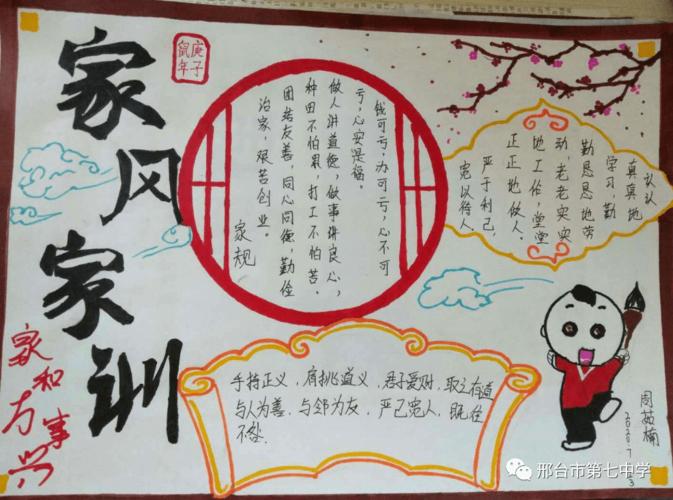 家风家训
庚子
鼠年
家和万事兴
钱可亏，力可亏，心不可
亏，心安是福。
做人讲道德，做事得良心，
种田不怕累，打工不怕苦。
团结友善，同心同德，勤俭
治家，艰苦创业。
家规
认认
真真地
学习，勤
勤恳恳地劳
动，老老实实
地工作，堂堂
正正地做人。
严于利己，
宽以待人。
手持正义，肩挑道义，君子爱财，取之有道
与人为善，与邻为友，严己宽人，既往
不咎.
周茹楠
2020.7
邢台市第七中学